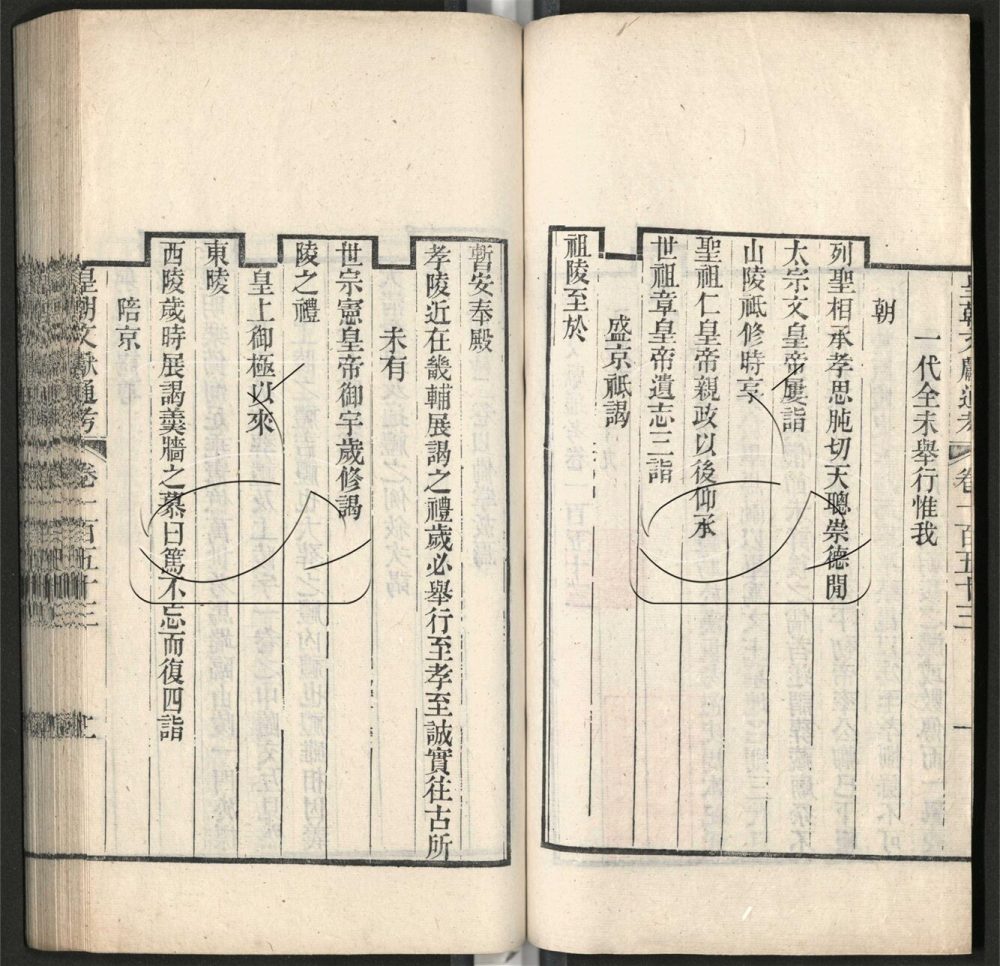 皇朝文獻通考 卷一百五十三 一
一代全未舉行惟我
朝
列聖相承孝思肫切天聰崇德閒
太宗文皇帝屢詣
山陵祗修時享
聖祖仁皇帝親政以後仰承
世祖章皇帝遺志三詣
盛京祗謁
祖陵至於
暫安奉殿
孝陵近在畿輔展謁之禮歲必舉行至孝至誠實往古所
未有
世宗憲皇帝御宇歲修謁
陵之禮
皇上御極以來
東陵
西陵歲時展謁羹牆之慕曰篤不忘而復四詣
陪京
皇朝文獻通考 卷一百五十三